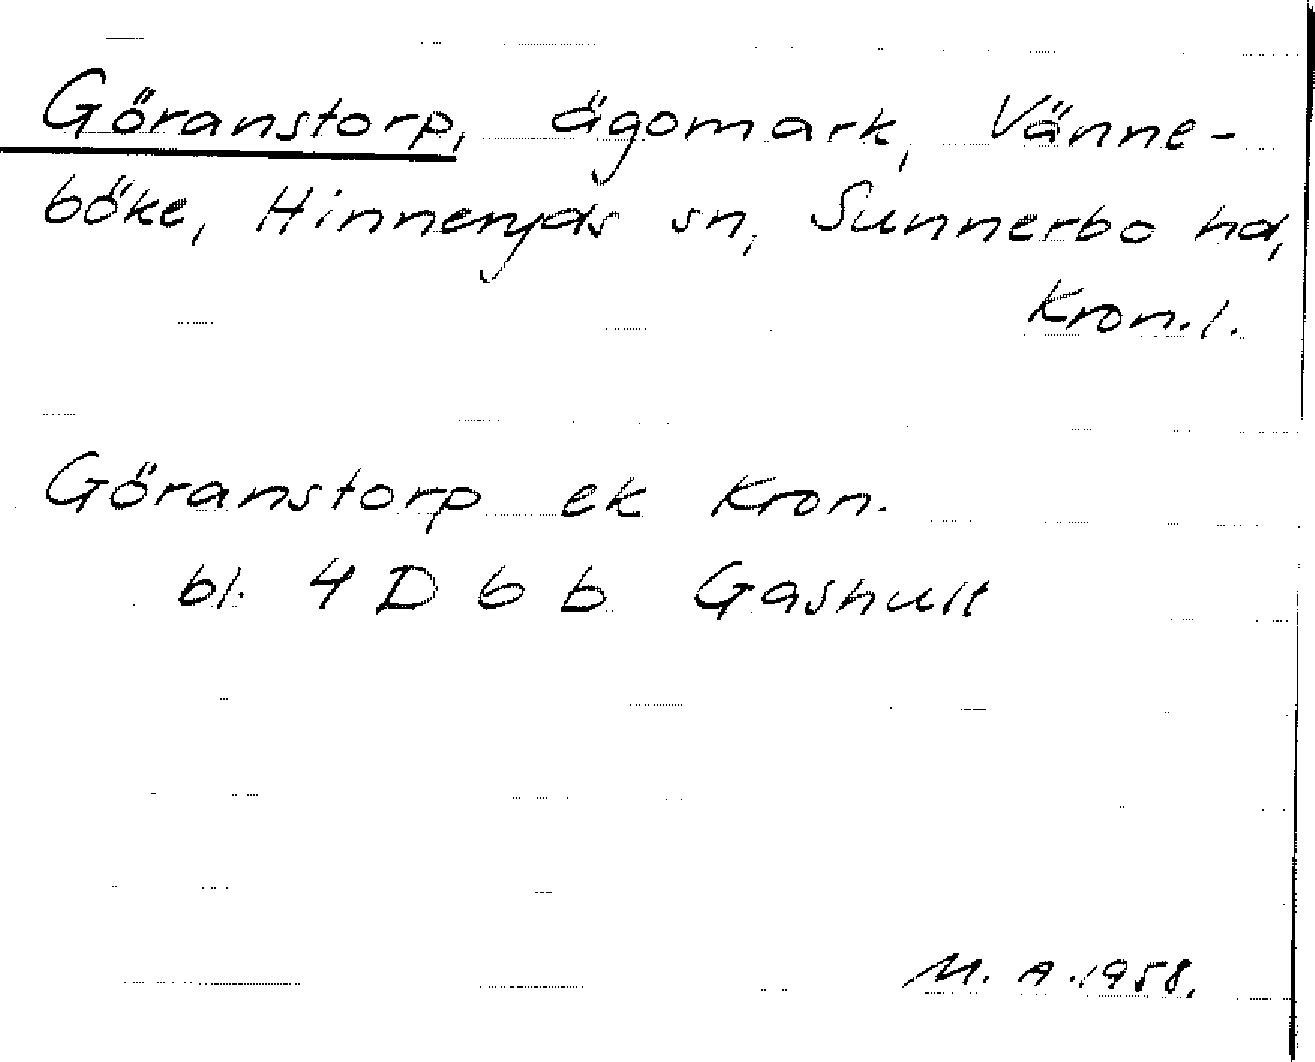 Göranstorp, ägomark, Vänne-
böke, Hinneryds sn, Sunnerbo hd,
Kron.l.
Göranstorp ek Kron.
bl. 4 D 6 b Gashult
M. A. 1958.